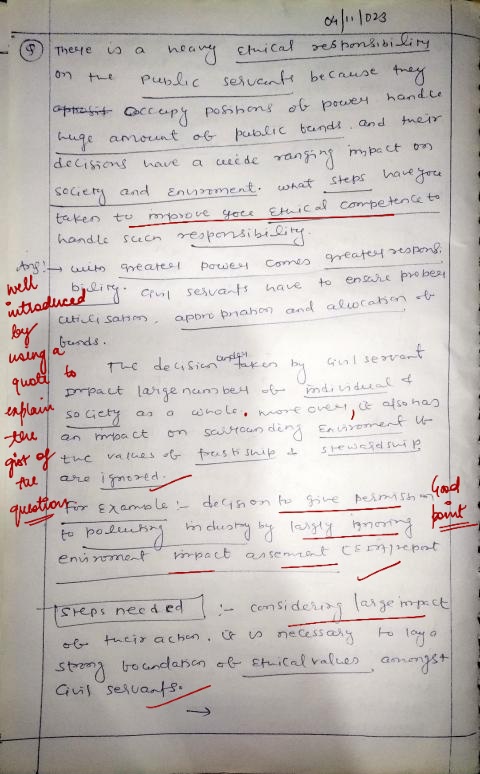 04/11/023
Q There is a heavy Ethical responsibility
on the public servants because they
occupy positions of power handle
huge amount of public funds. and their
decisions have a wide ranging impact on
society and Enviroment. what steps have you
taken to improve your Ethical competence to
handle such responsibility.
Ans:- → with greater power comes greater responsi
bility. civil servants have to ensure proper
utilisation, appropriation and allocation of
funds.
The decision under taken by civil servant
impact large number of individual &
society as a whole. more over, it also has
an impact on surrounding Enviroment if
the values of trustiship & stewardship
are ignored.
well
introduced
by
using a
quote to
explain
the
gist of
the
question
for Example:- decision to give permission
to polluting industry by largly ignoring
enviroment impact assement (EIA) report
Good
point
Steps needed :- considering large impact
of their action, it is necessary to lay a
strong foundation of Ethical values amongst
civil servants.
→